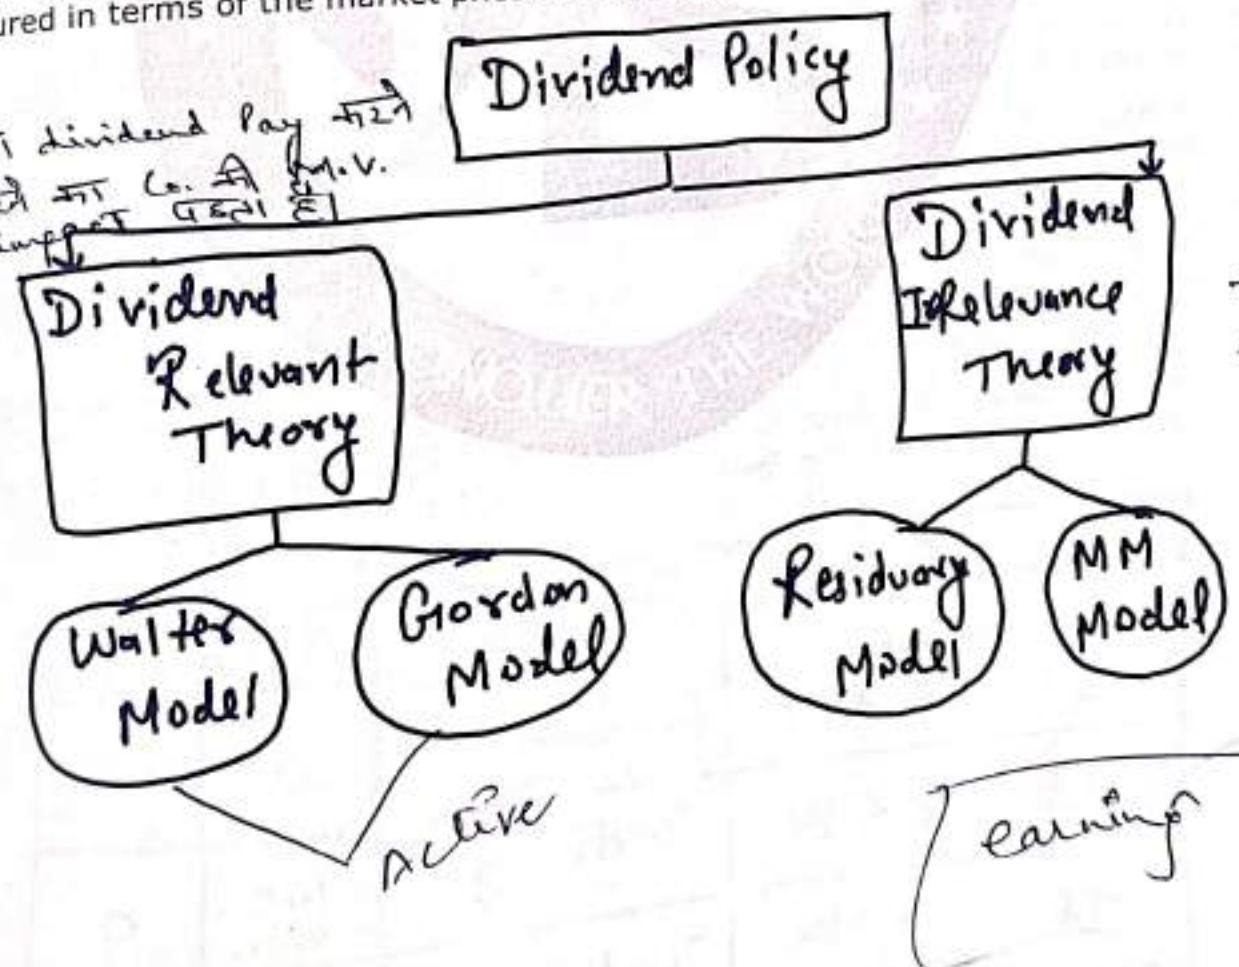 ured in terms of the market
Dividend Policy
dividend Pay करने
का Co. की M.V.
पड़ता है।
Dividend
Relevant
Theory
Dividend
IrRelevance
Theory
Walter
Model
Gordon
Model
Residuary
Model
MM
Model
Active
earning